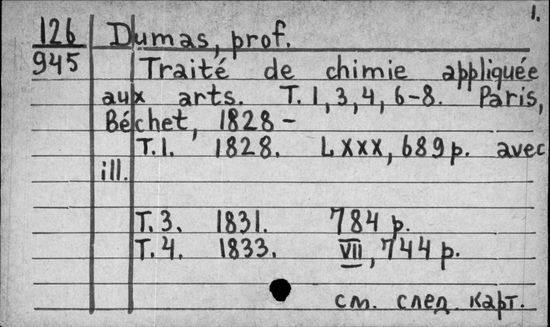 1.
126
945
Dumas, prof.
Traité de chimie appliquée
aux arts. T. 1, 3, 4, 6-8. Paris,
Béchet, 1828 -
T. 1. 1828. LXXX, 689 p. avec
ill.
T. 3. 1831. 784 p.
T. 4. 1833. VII, 744 p.
см. след. карт.